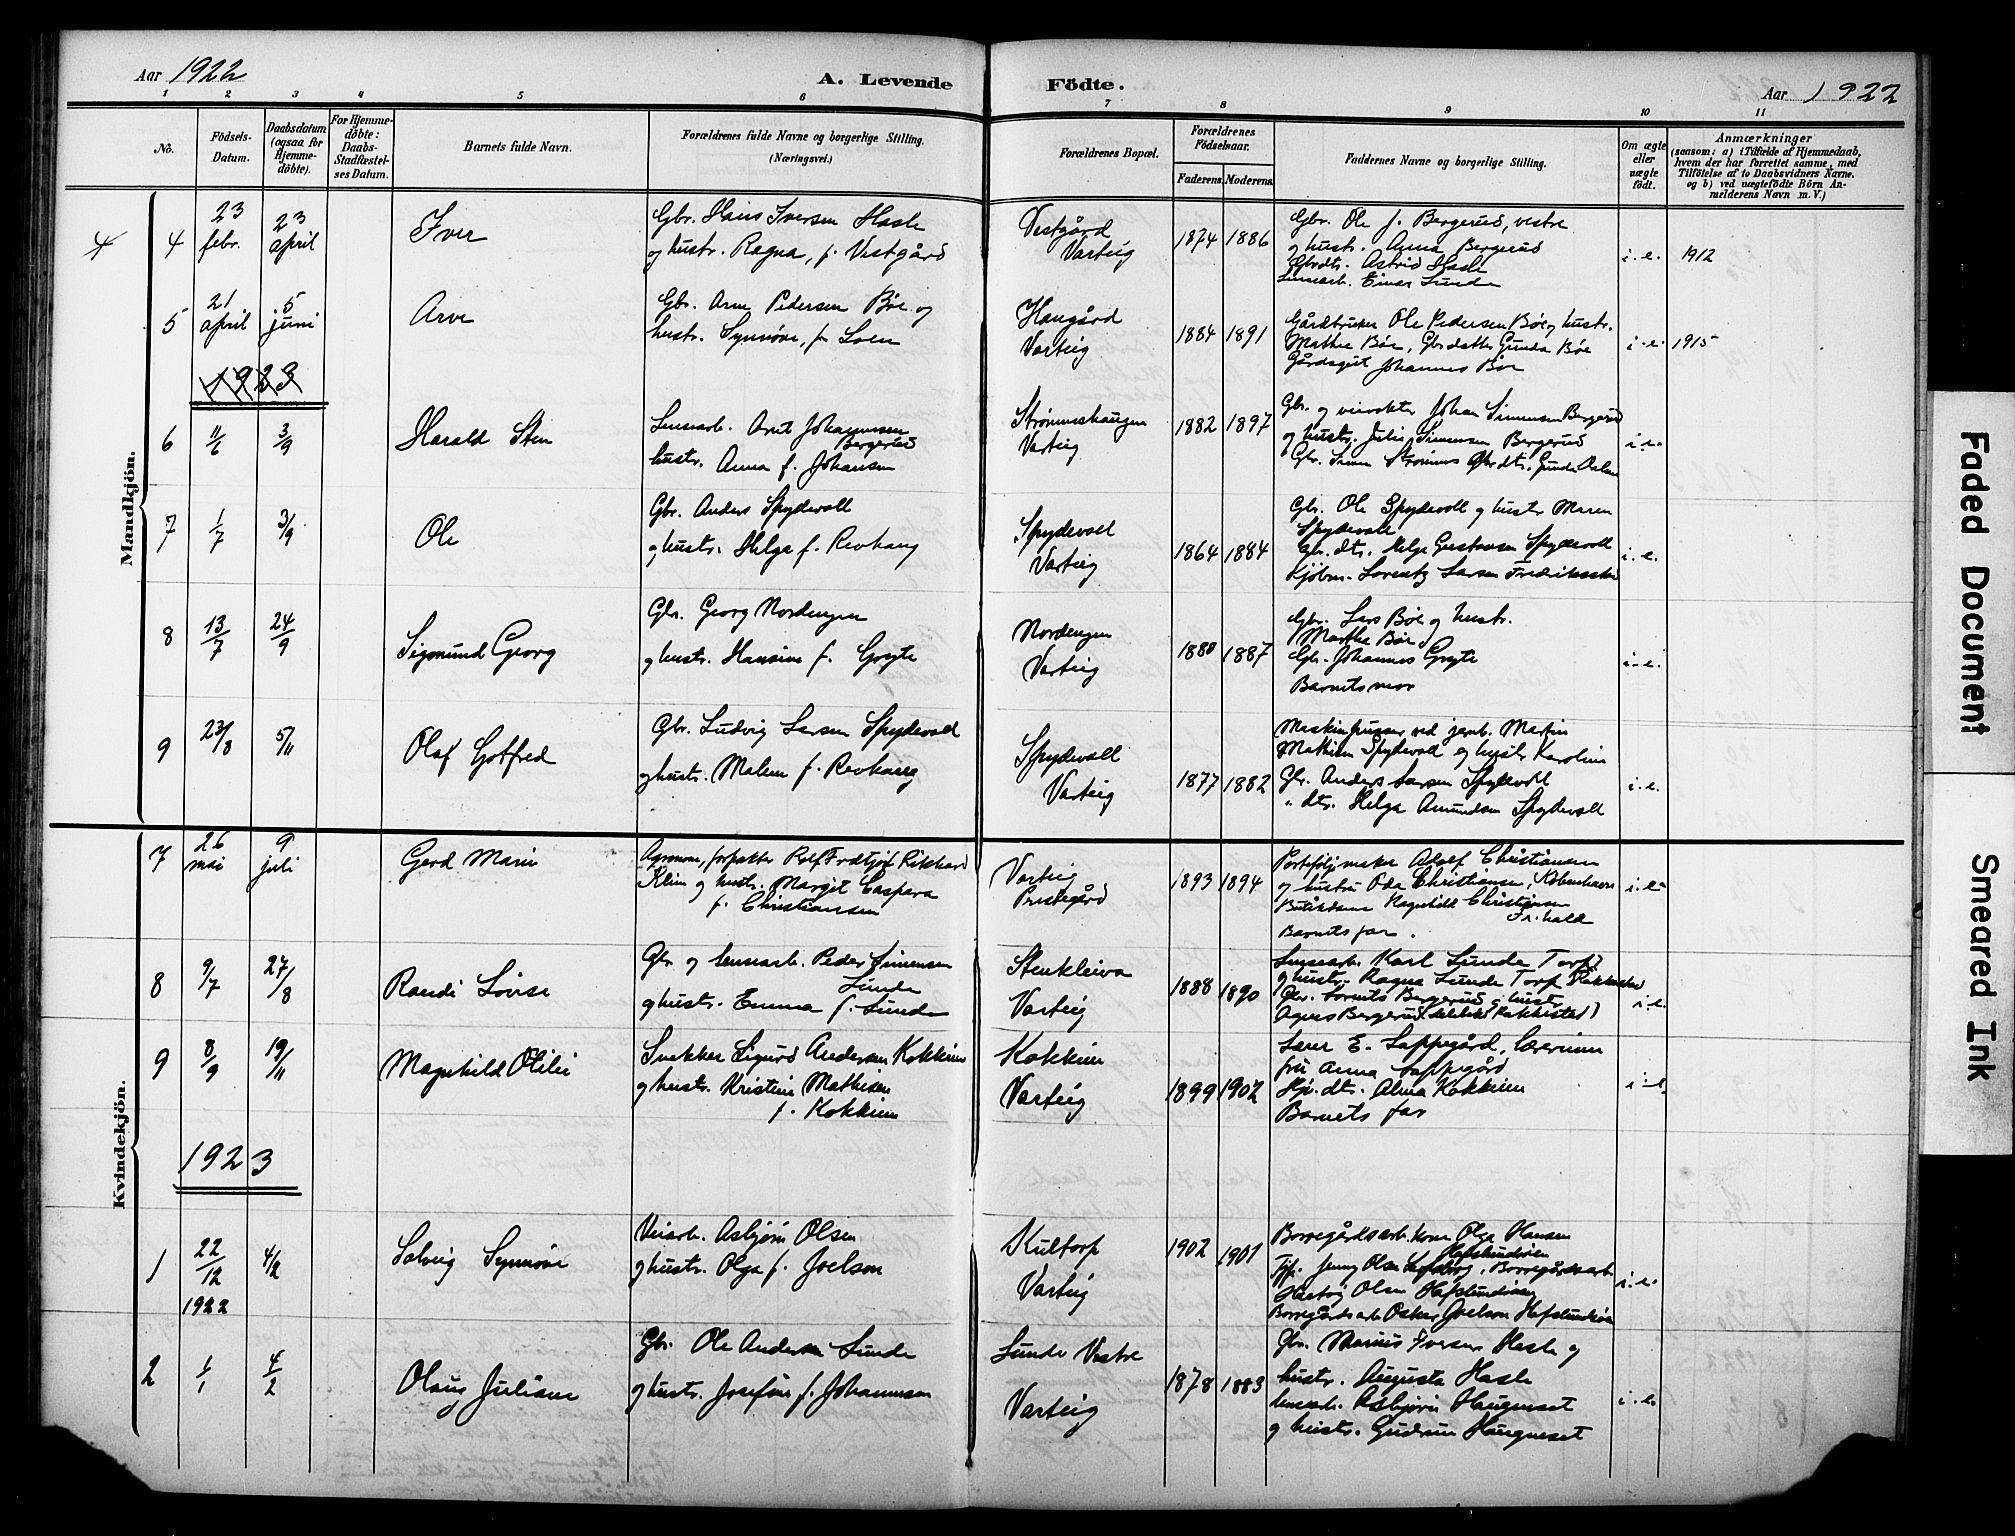 Aar 1922
A. Levende
Födte.
Aar 1922
1 2 3 4 5 6 7 8 9 10 11
No.
Födsels-
Datum.
Daabsdatum
(ogsaa for
Hjemme-
döbte).
For Hjemme-
döbte:
Daabs-
Stadfæstel-
ses Datum.
Barnets fulde Navn.
Forældrenes fulde Navne og borgerlige Stilling.
(Næringsvei.)
Forældrenes Bopæl.
Forældrenes
Födselsaar.
Faderens. Moderens.
Faddernes Navne og borgerlige Stilling.
Om ægte
eller
uægte
födt.
Anmærkninger
(saasom: a) i Tilfælde af Hjemmedaab,
hvem der har forrettet samme, med
Tilföielse af to Daabsvidners Navne.
og b) ved uægtefödte Börn An-
melderens Navn m. V.)
Mandkjön.
4 4 23 febr. 23 april
Iver
Gbr. Hans Iversen Hasle
og hustr. Ragna, f. Vestgård
Vestgård
Varteig
1874 1886
Gbr. Ole J. Bergerud, vestre
og hustr. Anna Bergerud
Gbrdtr. Astrid Hasle
Einar Sunde
i.e. 1912
5 21 april 5 juni
Arve
Gbr. Arne Pedersen Böe og
hustr. Synnöve, f.
Haugård
Varteig
1884 1891
Gårdbruker Ole Pedersen Böe og hustr.
Mathea Böe, Gbrdatter Gunda Böe
Gårdsgut Johannes Böe
i.e. 1915
1923
6 11/6 3/9
Harald Sten
Arnt Johannesen
Bergerud
hustr. Anna f. Johansen
Strömneshaugen
Varteig
1882 1897
Gbr. og Johan Simensen Bergerud
og hustr. Julie Simensen Bergerud
Gbr. Strömnes Gbrdtr. Gunda
i.e.
7 1/7 3/9
Ole
Gbr. Anders Spydevold
og hustr. Helga f. Revhaug
Spydevold
Varteig
1864 1884
Gbr. Ole Spydevold og hustr Maren
Spydevold
Gbr. dtr. Helga Gustavsen Spydevold
Kjöbm. Lorentz Larsen Fredrikstad
i.e.
8 13/7 24/9
Sigmund Georg
Gbr. Georg Nordengen
og hustr. Hansine f. Gryte
Nordengen
Varteig
1880 1887
Gbr. Lars Böe og hustr.
Martha Böe
Gbr. Johannes Gryte
Barnets mor
i.e.
9 23/8 5/11
Olaf Gotfred
Gbr. Ludvig Larsen Spydevold
og hustr. Malene f. Revhaug
Spydevold
Varteig
1877 1882
Maskinpusser ved jernb. Martin
Mathisen Spydevold og hustr Karoline
Gbr. Anders Larsen Spydevold
" dtr. Helga Amundsen Spydevold
i.e.
Kvindekjön.
7 26 mai 9 juli
Gerd Marie
Agronom, forpakter Rolf Fridtjof Rikhard
Klim og hustr. Margit Caspara
f. Christiansen
Varteig
Prestegård
1893 1894
Portefölj maker Adolf Christiansen
og hustru Oda Christiansen, Köbenhavn
Butikdame Ragnhild Christiansen
Fr.hald
Barnets far.
i.e.
8 9/7 27/8
Randi Lovise
Gbr og Peder Simensen
Sunde
og hustr. Emma f. Sunde
Stenkleiva
Varteig
1888 1890
Karl Sunde Torp
og hustr. Ragna Sunde Torp Rakkestad
Gbr. Bergerud og hustr
Agnes Bergerud Rakkestad)
i.e.
9 8/9 19/11
Magnhild Olilie
Snekker Sigurd Andersen Kokkim
og hustr. Kristine Mathisen
f. Kokkim
Kokkim
Varteig
1899 1902
Lærer E. Lappegård, lærerinne
fru Anna Lappegård
dtr. Alma Kokkim
Barnets far
i.e.
1923
1 22/12 1922 4/2
Solveig Synnöve
Veiarb. Asbjörn Olsen
og hustr. Olga f. Joelson
Kultorp
Varteig
1902 1901
Borregårdsarb. kone Olga Hansen
Hafslundöien
Tjp. Jenny Olsen Sarpsborg, Borregårdsarb
Hartvig Olsen Hafslundöien
Borregårdsarb Oskar Joelson Hafslundöien
i.e.
2 1/1 4/2
Olaug Juliane
Gbr. Ole Andersen Sunde
og hustr. Josefine f. Johannesen
Sunde Vestre
Varteig
1878 1883
Gbr. Marius Iversen Hasle og
hustr. Augusta Hasle
Asbjörn Haugneset
og hustr. Gudrun Haugneset
i.e.
Faded Document
Smeared Ink